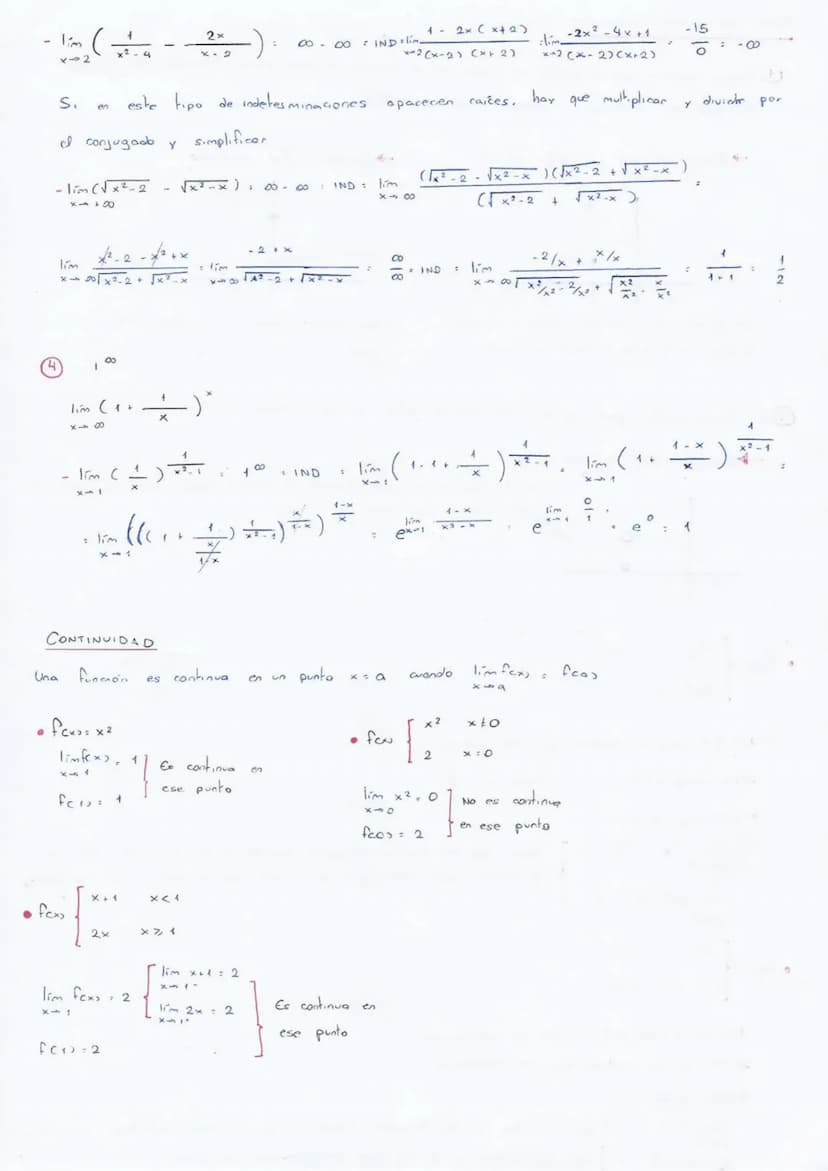 - lím x→2 ( 1/(x²-4) - 2x/(x-2) ) = ∞ - ∞ = IND = lím x→2 (1 - 2x(x+2))/((x-2)(x+2)) = lím x→2 (-2x²-4x+1)/((x-2)(x+2)) = -15/0 = -∞
Si en este tipo de indeterminaciones aparecen raíces, hay que multiplicar y dividir por
el conjugado y simplificar
- lím x→+∞ (√(x²-2) - √(x²-x)) = ∞ - ∞ = IND = lím x→∞ ((√(x²-2) - √(x²-x))(√(x²-2) + √(x²-x)))/(√(x²-2) + √(x²-x)) =
lím x→∞ (x²-2-x²+x)/(√(x²-2) + √(x²-x)) = lím x→∞ (-2+x)/(√(x²-2) + √(x²-x)) = ∞/∞ = IND = lím x→∞ (-2/x + x/x)/(√(x²/x² - 2/x²) + √(x²/x² - x/x²)) = 1/(1+1) = 1/2
④ 1^∞
lím x→∞ (1 + 1/x)^x
- lím x→1 (1/x)^(1/(x²-1)) = 1^∞ = IND = lím x→1 (1-1+1/x)^(1/(x²-1)) = lím x→1 (1 + (1-x)/x)^(1/(x²-1)) =
= lím x→1 (((1 + 1/(x/(1-x)))^(1/(x²-1)))^(x/(1-x)))^((1-x)/x) = e^(lím x→1 (1-x)/(x³-x)) = e^(lím x→1 0/1) = e^0 = 1
CONTINUIDAD
Una función es continua en un punto x = a cuando lím x→a f(x) = f(a)
• f(x) = x²
lím x→1 f(x) = 1
f(1) = 1
Es continua en
ese punto
• f(x) [ x² x≠0
2 x=0
lím x→0 x² = 0
f(0) = 2
No es continua
en ese punto
• f(x) [ x+1 x<1
2x x≥1
lím x→1 f(x) = 2 { lím x→1⁻ x+1 = 2
lím x→1⁺ 2x = 2
f(1) = 2
Es continua en
ese punto